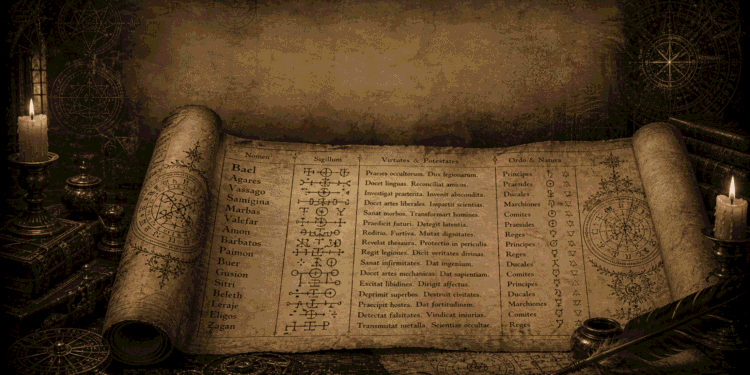 Nomen Sigillum Virtutes & Potestates Ordo & Natura
Bael Praeses occultorum. Dux legionarum. Principes
Agares Docet linguas. Reconciliat amicos. Praesides
Vassago Investigat praeterita. Invenit abscondita. Ducales
Samigina Docet artes liberales. Impartit scientias. Marchiones
Marbas Sanat morbos. Transformat homines. Comites
Valefar Praedicit futuri. Detegit latentia. Praesides
Amon Reditus. Furtiva. Mutat dignitates. Reges
Barbatos Revelat thesauros. Protectio in periculis. Principes
Paimon Regit legiones. Dicit veritates divinas. Reges
Buer Sanat infirmitates. Dat ingenium. Ducales
Gusion Docet artes mechanicas. Dat sapientiam. Comites
Sitri Excitat libidines. Dirigit affectus. Principes
Beleth Deprimit superbos. Destruit civitates. Ducales
Leraje Praecipit hostes. Dat fortitudinem. Marchiones
Eligos Detectat falsitates. Vindicat iniurias. Comites
Zagan Transmutat metalla. Scientiae occultae. Reges